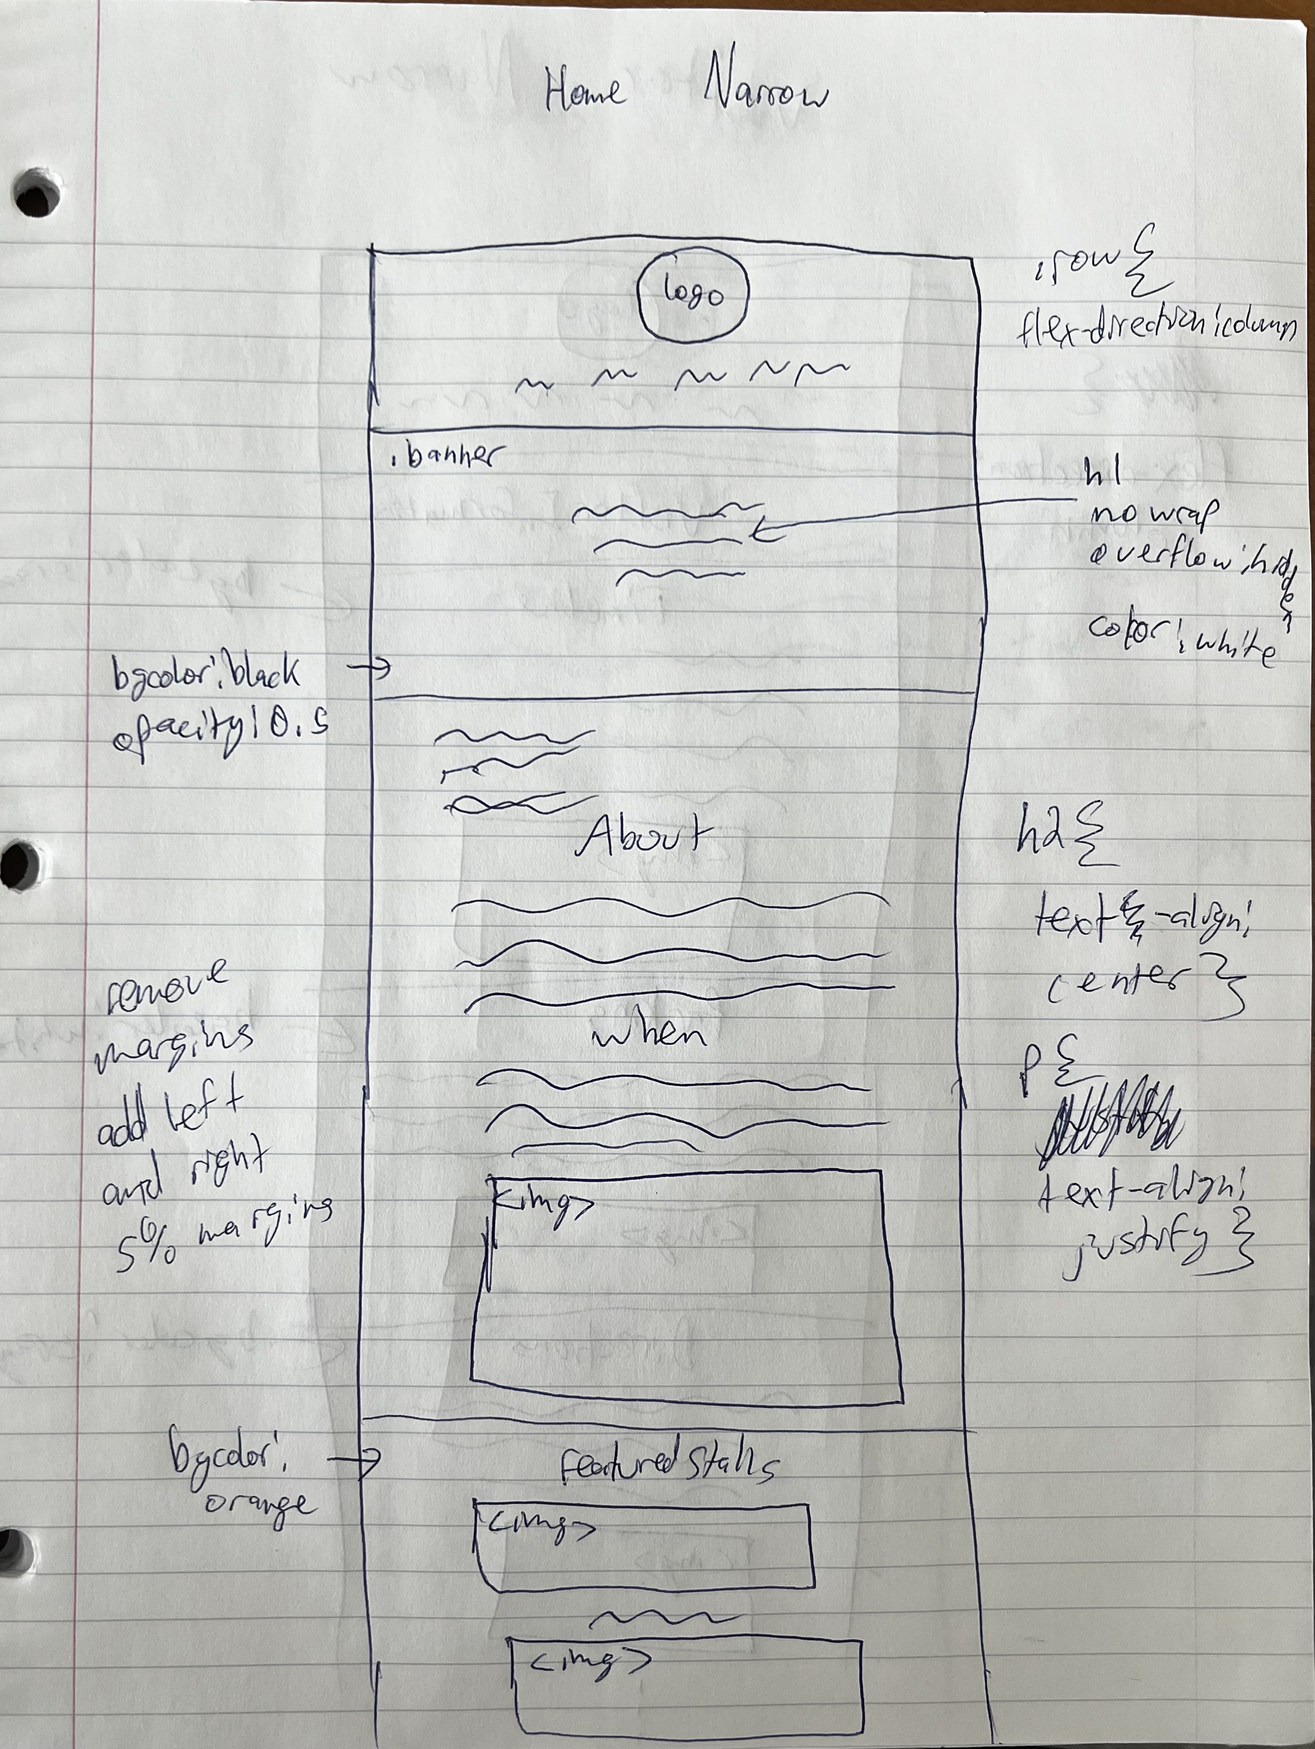 Home Narrow
logo
.row{
flex-direction:column
.banner
h1
no wrap
overflow:hidden
color:white
bgcolor:black
opacity:0.5
About
h2{
text-align:
center}
remove
margins
add left
and right
5% margins
when
p{
text-align:
justify}
<img>
bgcolor:
orange
featured stalls
<img>
<img>